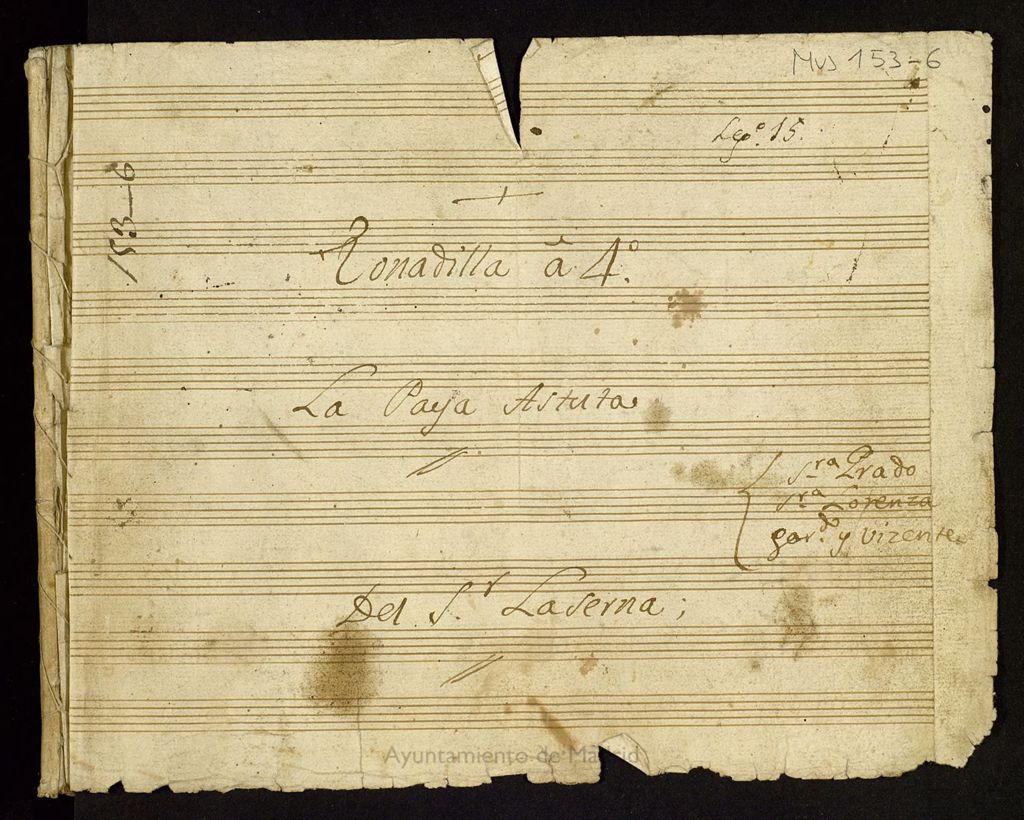 Mus 153-6
Leg.º 15.
153-6
Tonadilla â 4.º
La Paya Astuta
S.ra Prado
S.ra Lorenza
gar.do y vizente
Del S.r Laserna;
Ayuntamiento de Madrid